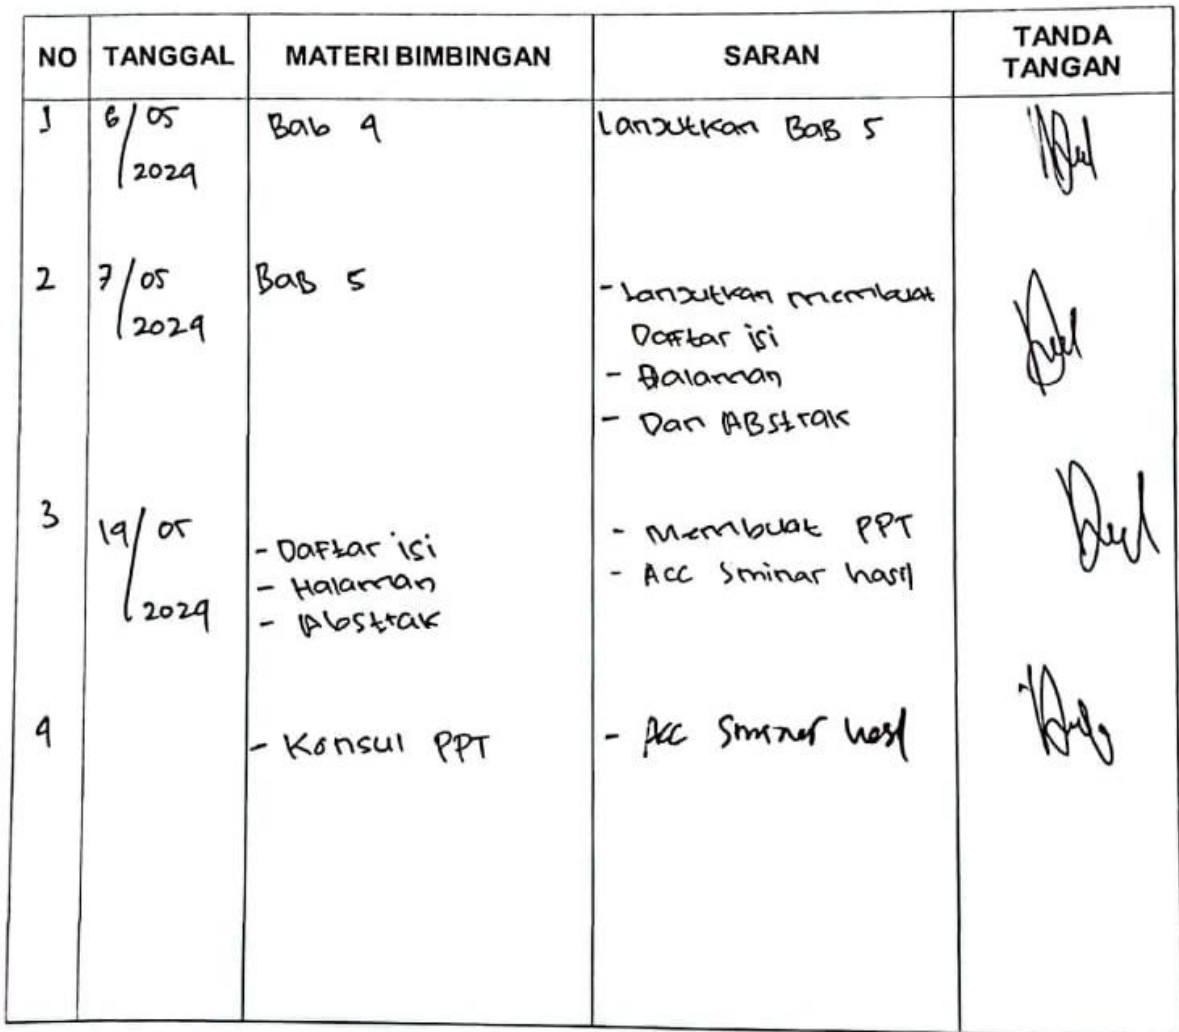 NO TANGGAL MATERI BIMBINGAN SARAN TANDA TANGAN
1 6/05 2024 Bab 4 Lanjutkan BaB 5
2 7/05 2024 BaB 5
- Lanjutkan membuat
Daftar isi
- Halaman
- Dan ABstrak
3 14/05 2024
- Daftar isi
- Halaman
- Abstrak
- Membuat PPT
- Acc Sminar hasil
4
- Konsul PPT
- Acc Sminar hasil